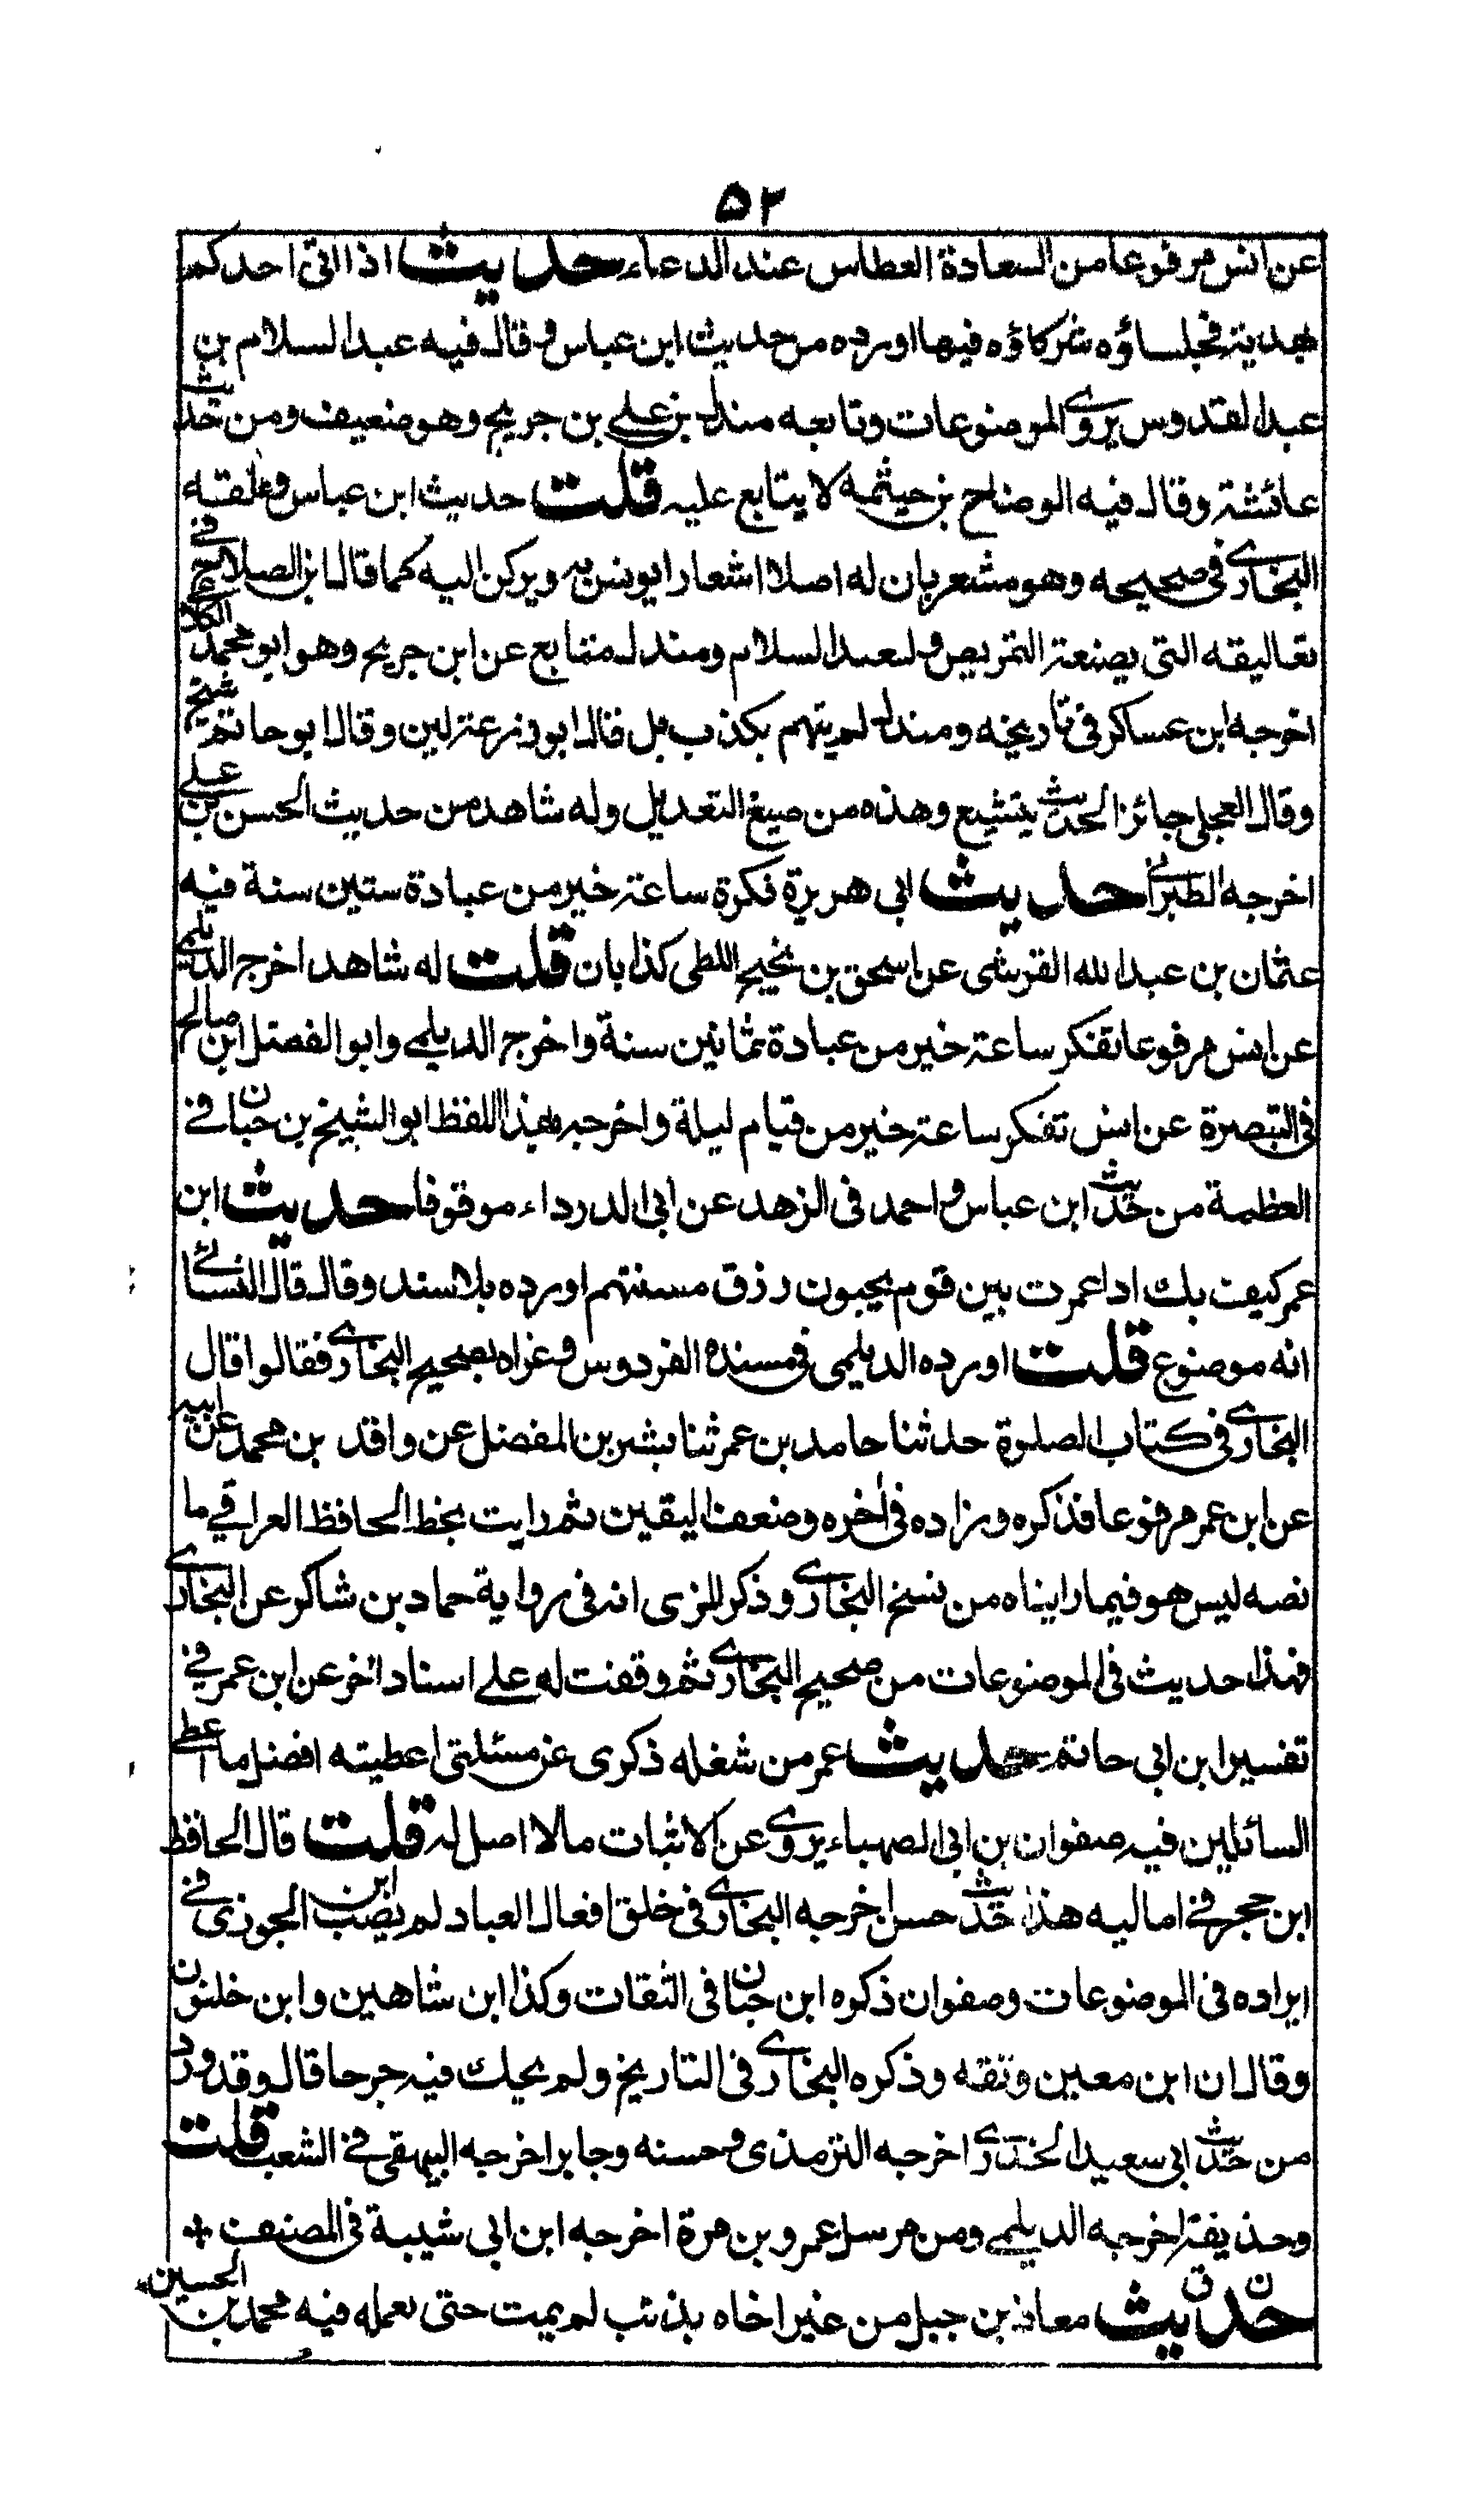 ٥٢
عن انس مرفوعا من السعادة العطاس عند الدعاء حديث اذا اتى احدكم
بهدية فجلساؤه شركاؤه فيها اورده من حديث ابن عباس وقال فيه عبد السلام بن
عبد القدوس يروى الموضوعات وتابعه مندل بن على بن جريج وهو ضعيف ومن حديث
عائشة وقال فيه الوضاح بن خيثمه لا يتابع عليه قلت حديث ابن عباس وعلقه
البخارى فى صحيحه وهو مشعر بان له اصلا اشعارا يونس به ويركن اليه كما قال ابن الصلاح فى
تعاليقه التى بصنعة التمريض ولعبد السلام ومندل متابع عن ابن جريج وهو ابو محمد الكلاعى
اخرجه ابن عساكر فى تاريخه ومندل لم يتهم بكذب بل قال ابو زرعة لين وقال ابو حاتم شيخ
وقال العجلى جائز الحديث يتشيع وهذه من صيغ التعديل وله شاهد من حديث الحسن بن على
اخرجه الطبرانى حديث ابى هريرة فكرة ساعة خير من عبادة ستين سنة فيه
عثمان بن عبد الله القرشى عن اسحق بن نجيح اللطى كذابان قلت له شاهد اخرج الديلمى
عن انس مرفوعا تفكر ساعة خير من عبادة ثمانين سنة واخرج الديلمى وابو الفضل ابن صالح
فى التبصرة عن انس تفكر ساعة خير من قيام ليلة واخرجه بهذا اللفظ ابو الشيخ بن حبان فى
العظمة من حديث ابن عباس واحمد فى الزهد عن ابى الدرداء موقوفا حديث ابن
عمر كيف بك اذا عمرت بين قوم يحبون رزق سنتهم اورده بلا سند وقال قال النسائى
انه موضوع قلت اورده الديلمى فى مسنده الفردوس وعزاه بصحيح البخارى فقالوا قال
البخارى فى كتاب الصلوة حدثنا حامد بن عمر ثنا بشر بن المفضل عن واقد بن محمد عن ابيه
عن ابن عمر مرفوعا فذكره وزاده فى اخره وضعف اليقين ثم رايت بخط الحافظ العراقى ما
نصه ليس هو فيما رايناه من نسخ البخارى وذكر المزى انه فى رواية حماد بن شاكر عن البخارى
فهذا حديث فى الموضوعات من صحيح البخارى ثم وقفت له على اسناد اخر عن ابن عمر فى
تفسير ابن ابى حاتم حديث عمر من شغله ذكرى عن مسئلتى اعطيته افضل ما اعطى
السائلين فيه صفوان بن ابى الصهباء يروى عن الاثبات مالا اصل له قلت قال الحافظ
ابن حجر فى اماليه هذا حديث حسن اخرجه البخارى فى خلق افعال العباد لم يصب ابن الجوزى فى
ايراده فى الموضوعات وصفوان ذكره ابن حبان فى الثقات وكذا ابن شاهين وابن خلفون
وقال ان ابن معين وثقه وذكره البخارى فى التاريخ ولم يحك فيه جرحا قال وقد ورد
من حديث ابى سعيد الخدرى اخرجه الترمذى وحسنه وجابر اخرجه البيهقى فى الشعب قلت
وحذيفة اخرجه الديلمى ومن مرسل عمرو بن مرة اخرجه ابن ابى شيبة فى المصنف
حديث معاذ بن جبل من عير اخاه بذنب لم يمت حتى يعمله فيه محمد بن الحسين